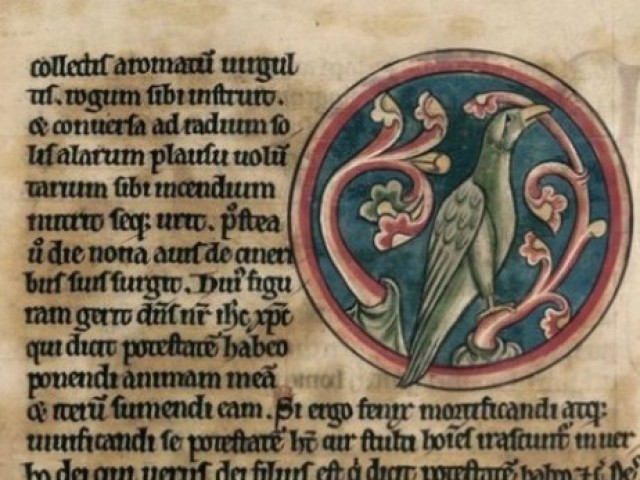 collectis aromatū uirgul
tis. rogum sibi instruit.
& conuersa ad radium so
lis alarum plausu uolū
tarium sibi incendium
nutrit seq; urit. p̄stea
ū die nona auis de cineri
bus suis surgit. Hui᾽ figu
ram gerit dn̄s nr̄ ih̄c xp̄c
qui dicit potestatē habeo
ponendi animam meā
& iterū sumendi eam. Si ergo fenix mortificandi atq;
uiuificandi se potestatē h̄t cur stulti hoīes irascunt᾽ in uer
bo dei qui uerus dei filius est q̇ dicit potestatē habeo